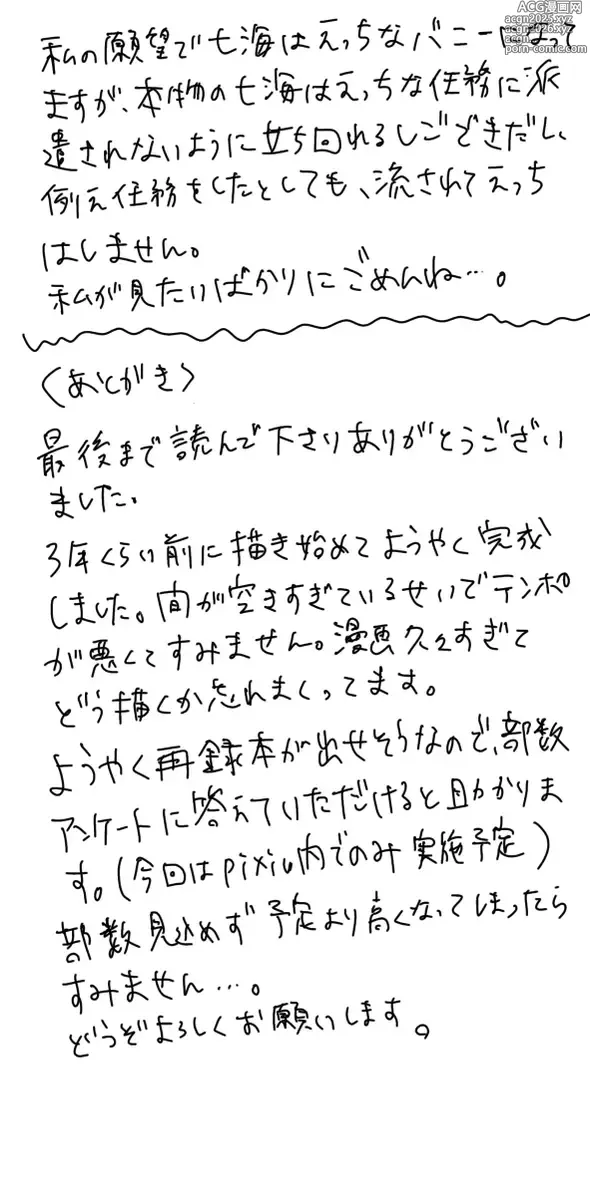 ACG漫画网
acgn2025.xyz
acgn2026.xyz
porn-comic.com
私の願望で七海はえっちなバニーになって
ますが、本物の七海はえっちな任務に派
遣されないように立ち回れるしごできだし、
例え任務をしたとしても、流されてえっち
はしません。
私が見たいばかりにごめんね…。
〈あとがき〉
最後まで読んで下さりありがとうござい
ました。
3年くらい前に描き始めてようやく完成
しました。間が空きすぎているせいでテンポ
が悪くてすみません。漫画久々すぎて
どう描くか忘れまくってます。
ようやく再録本が出せそうなので、部数
アンケートに答えていただけると助かりま
す。(今回はpixiv内でのみ実施予定)
部数見込めず予定より高くなってしまったら
すみません…。
どうぞよろしくお願いします。